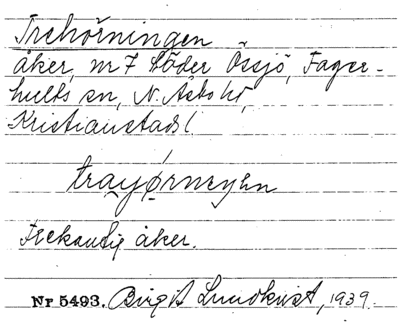 Trehörningen
åker, nr 7 Söder Össjö, Fager-
hults sn, N. Åsbo hd,
Kristianstads l
Trekantig åker.
Nr 5493. Birgit Lundkvist, 1939.